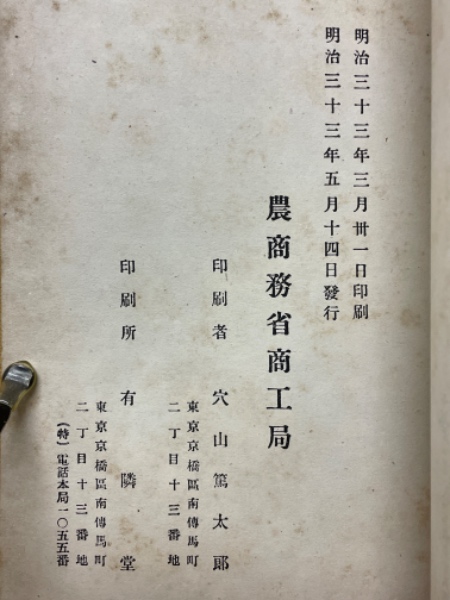 明治三十三年三月卅一日印刷
明治三十三年五月十四日發行
農商務省商工局
印刷者 穴山篤太郎
東京京橋區南傳馬町
二丁目十三番地
印刷所 有隣堂
東京京橋區南傳馬町
二丁目十三番地
(特)電話本局一〇五五番